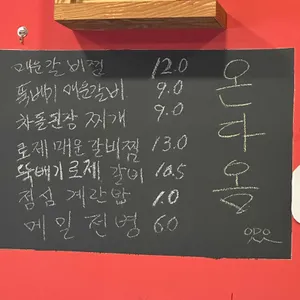 매운갈비찜 12.0
뚝배기 매운갈비 9.0
차돌된장 찌개 9.0
로제 매운갈비찜 13.0
뚝배기로제 갈비 10.5
점심 계란밥 1.0
메밀전병 6.0
온다옴